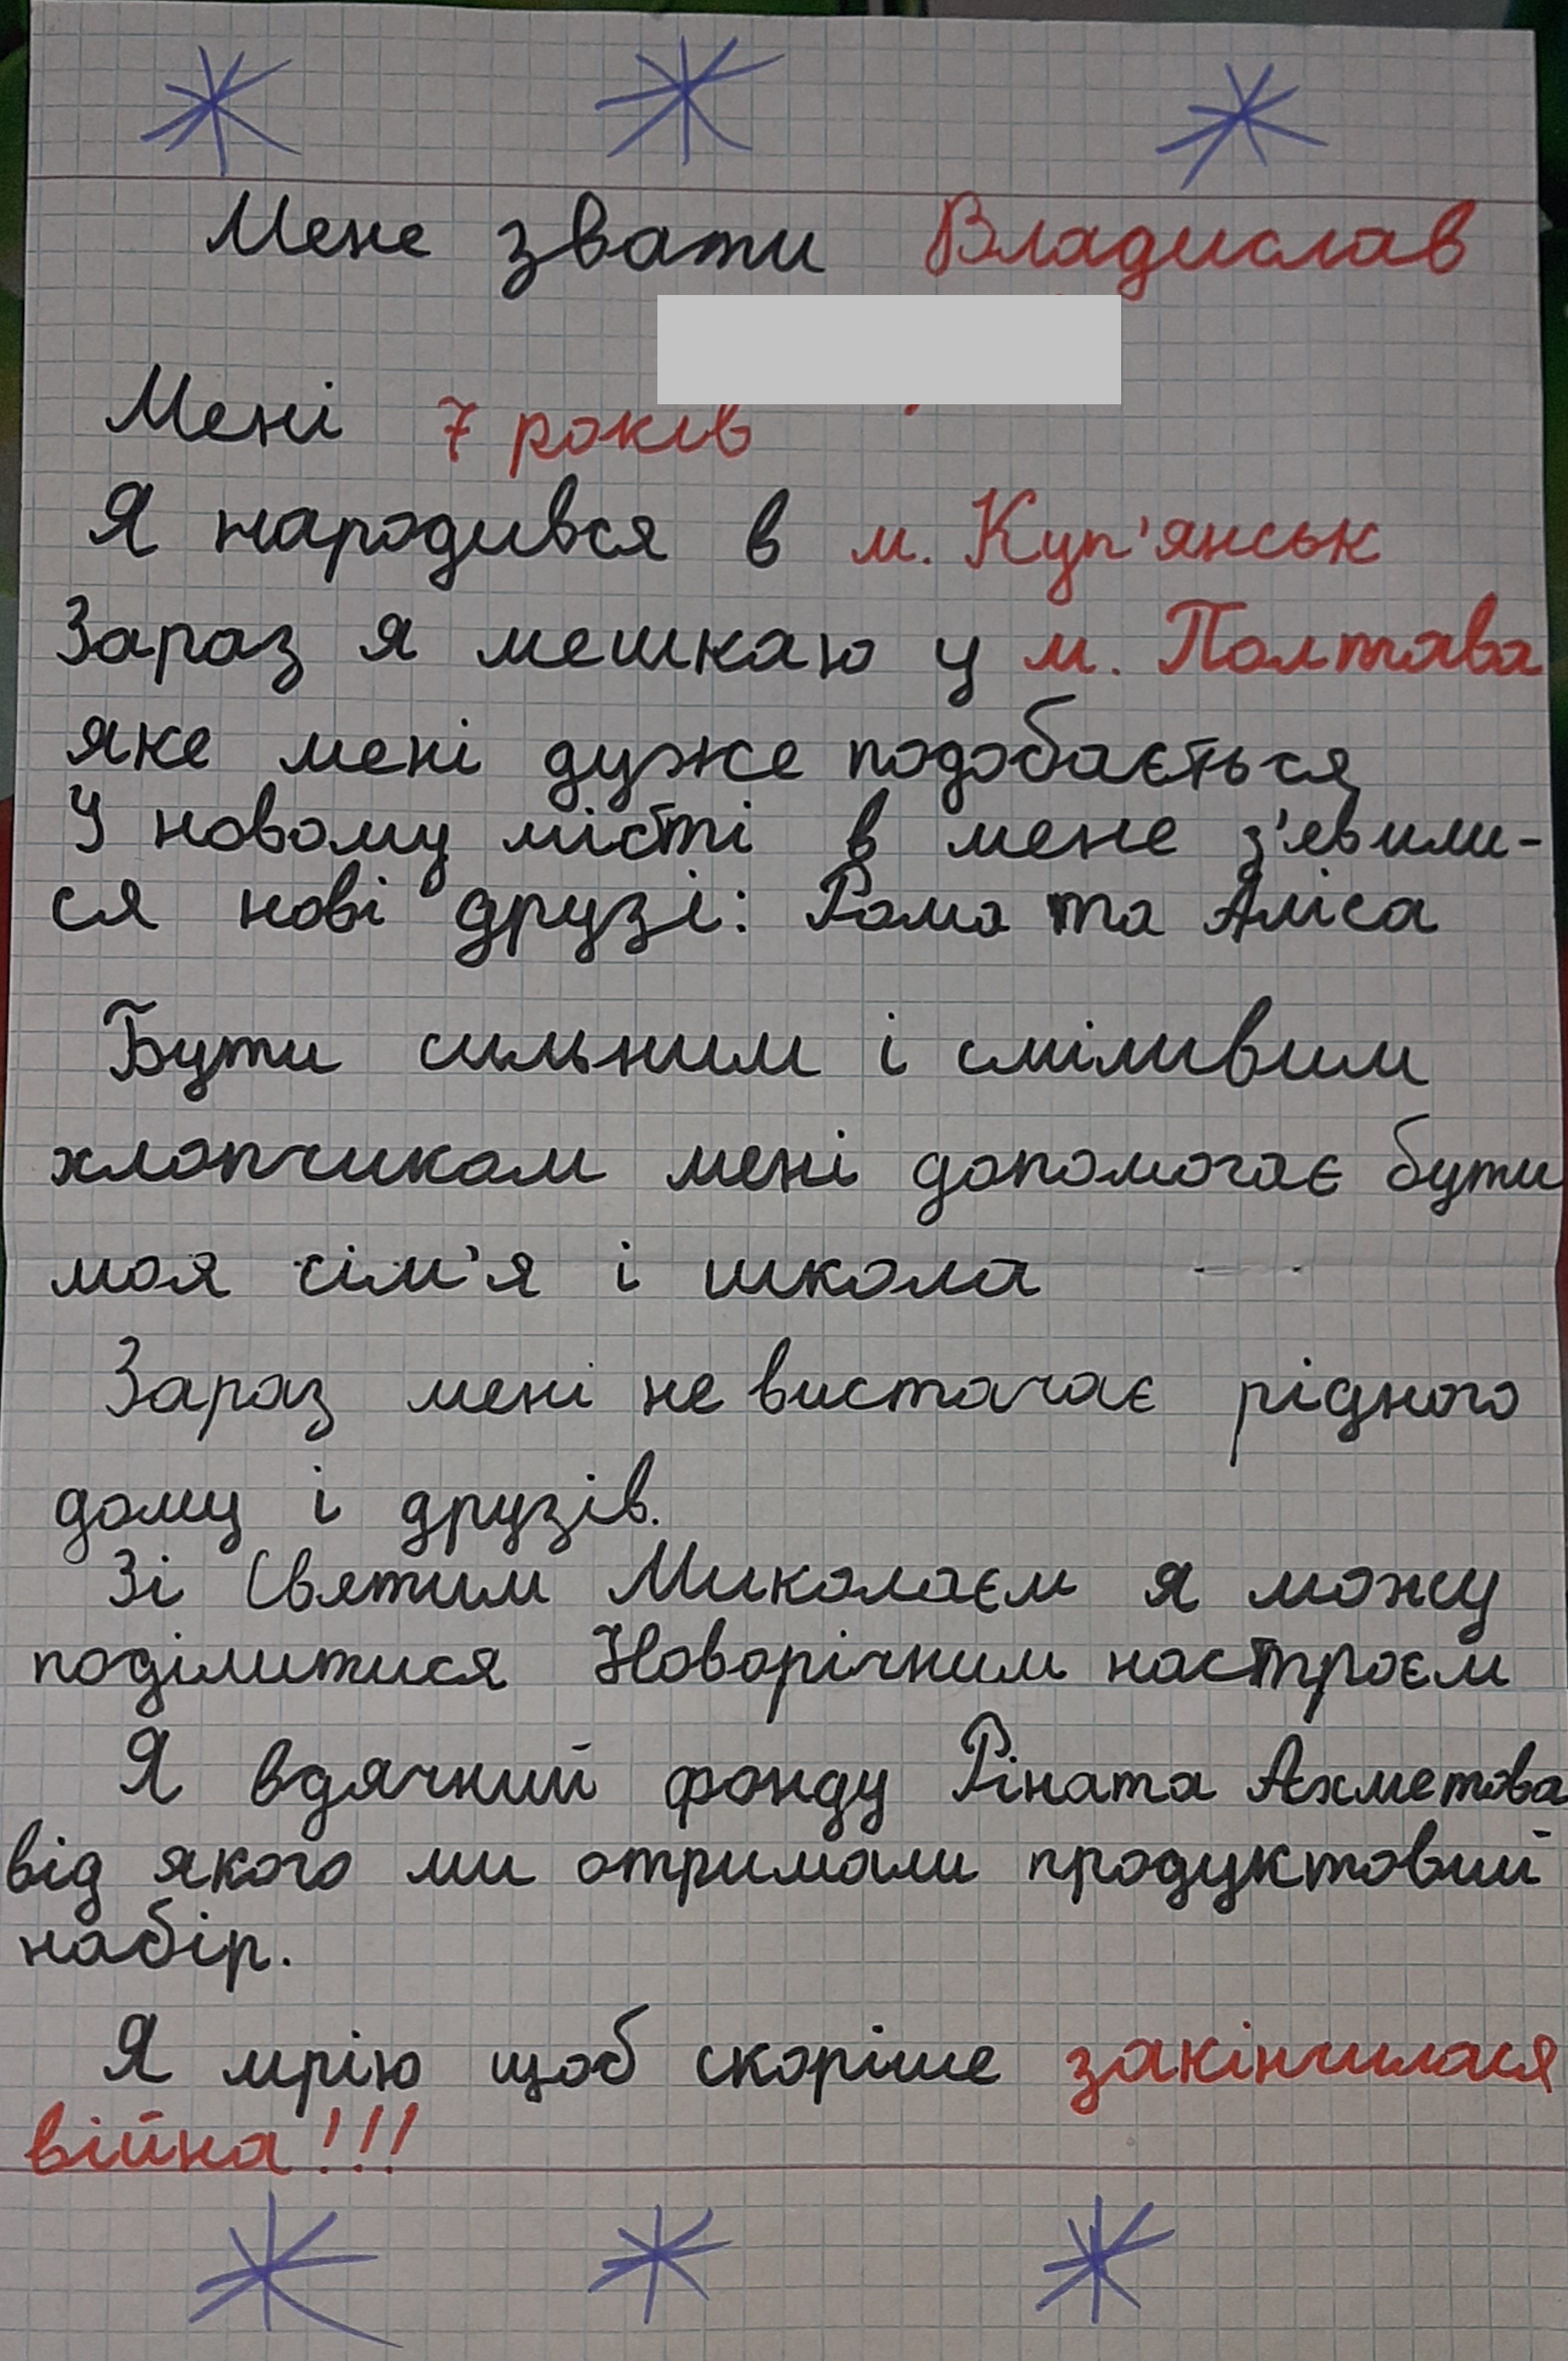 Мене звати Владислав
Мені 7 років
Я народився в м. Куп'янськ
Зараз я мешкаю у м. Полтава
яке мені дуже подобається
У новому місті в мене з'евили-
ся нові друзі: Рома та Аліса
Бути сильним і сміливим
хлопчиком мені допомогає бути
моя сім'я і школа
Зараз мені не вистачає рідного
дому і друзів.
Зі Святим Миколаєм я можу
поділитися Новорічним настроєм
Я вдячний фонду Ріната Ахметова
від якого ми отримали продуктовий
набір.
Я мрію щоб скоріше закінчилася
війна!!!